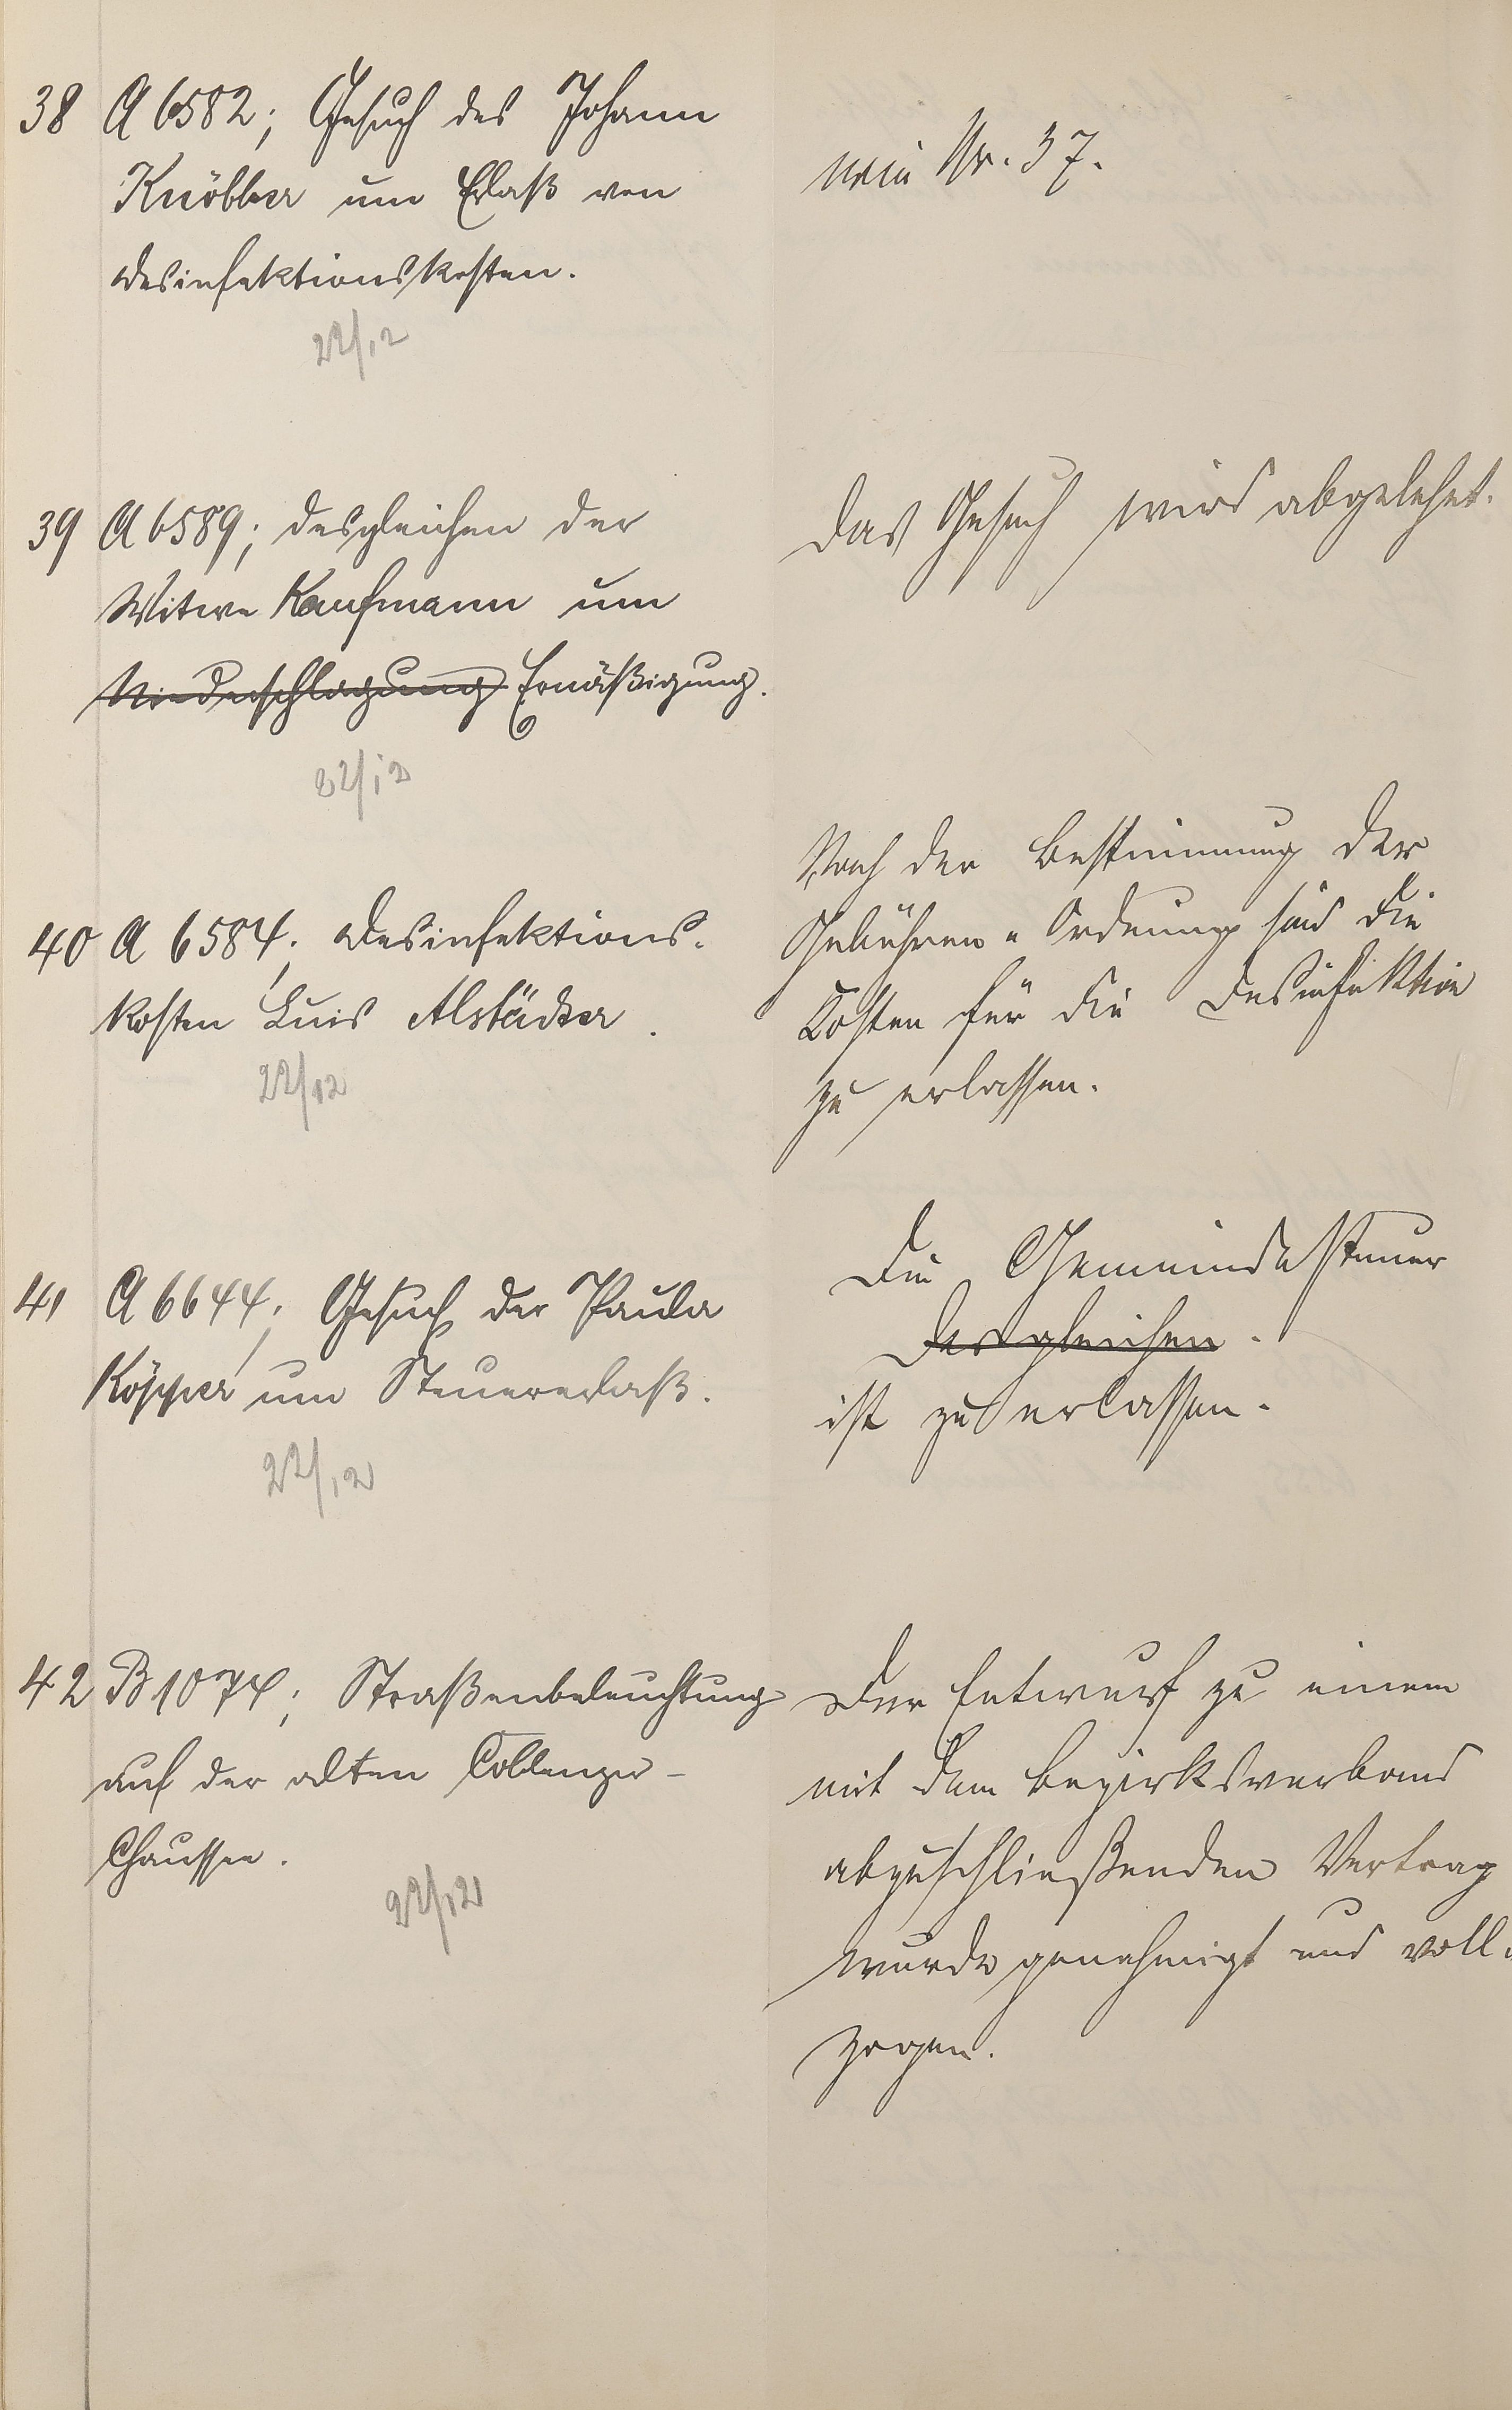 38 A 6582; Gesuch des Johann
Knöbber um Erlaß von
Desinfektionskosten.
22/12
wie Nr. 37.
39 A 6589; desgleichen der
Witwe Kaufmann um
Niederschlagung Ermäßigung.
22/12
Das Gesuch wird abgelehnt.
40 A 6584; Desinfektions-
kosten Luis Alstädter.
22/12
Nach der Bestimmung der
Gebühren-Ordnung sind die
Kosten für die Desinfektion
zu erlassen.
41 A 6644; Gesuch der Paula
Köpper um Steuererlaß.
22/12
Die Gemeindesteuer
desgleichen.
ist zu erlassen.
42 B 1074; Straßenbeleuchtung
auf der alten Coblenzer-
Chaussee.
22/12
Der Entwurf zu einem
mit dem Bezirksverband
abzuschließenden Vertrag
wurde genehmigt und voll-
zogen.